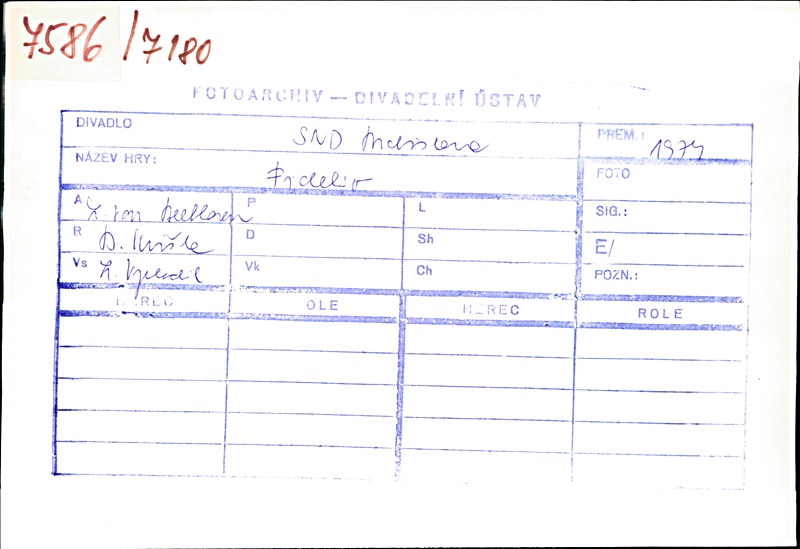 7586/7180
FOTOARCHIV — DIVADELNÍ ÚSTAV
DIVADLO SND Bratislava
PREM.: 1974
NÁZEV HRY: Fidelio
FOTO
A L. van Beethoven
P
L
SIG.:
R B. Kriška
D
Sh
E/
Vs L. Vychodil
Vk
Ch
POZN.:
HEREC ROLE HEREC ROLE